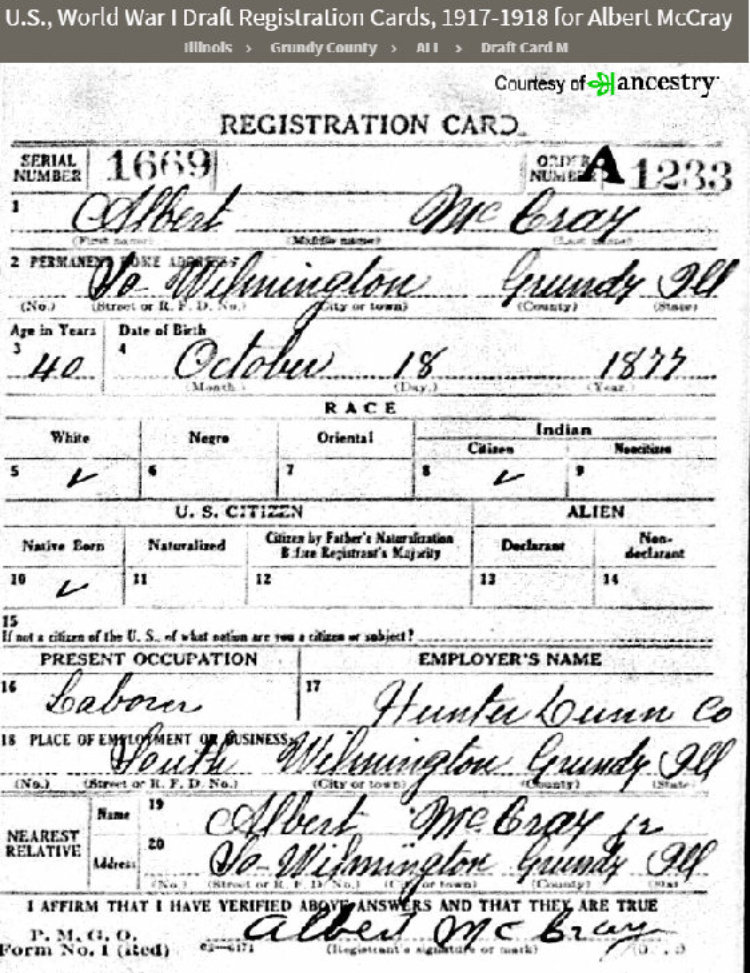 U.S., World War I Draft Registration Cards, 1917-1918 for Albert McCray
Illinois > Grundy County > All > Draft Card M
Courtesy of ancestry
REGISTRATION CARD
SERIAL NUMBER 1669 ORDER NUMBER A 1233
1 Albert Mc Cray
(First name) (Middle name) (Last name)
2 PERMANENT HOME ADDRESS
So Wilmington Grundy Ill
(No.) (Street or R. F. D. No.) (City or town) (County) (State)
Age in Years Date of Birth
3 40 4 October 18 1877
(Month.) (Day.) (Year.)
RACE
White Negro Oriental Indian
Citizen Noncitizen
5 ✓ 6 7 8 ✓ 9
U. S. CITIZEN ALIEN
Native Born Naturalized Citizen by Father's Naturalization Before Registrant's Majority Declarant Non-declarant
10 ✓ 11 12 13 14
15
If not a citizen of the U. S., of what nation are you a citizen or subject?
PRESENT OCCUPATION EMPLOYER'S NAME
16 Laborer 17 Hunter Dunn Co
18 PLACE OF EMPLOYMENT OR BUSINESS
South Wilmington Grundy Ill
(No.) (Street or R. F. D. No.) (City or town) (County) (State)
NEAREST RELATIVE Name 19 Albert Mc Cray Jr
Address 20 So-Wilmington Grundy Ill
(No.) (Street or R. F. D. No.) (City or town) (County) (State)
I AFFIRM THAT I HAVE VERIFIED ABOVE ANSWERS AND THAT THEY ARE TRUE
P. M. G. O.
Form No. 1 (Red) Albert Mc Cray
(Registrant's signature or mark)